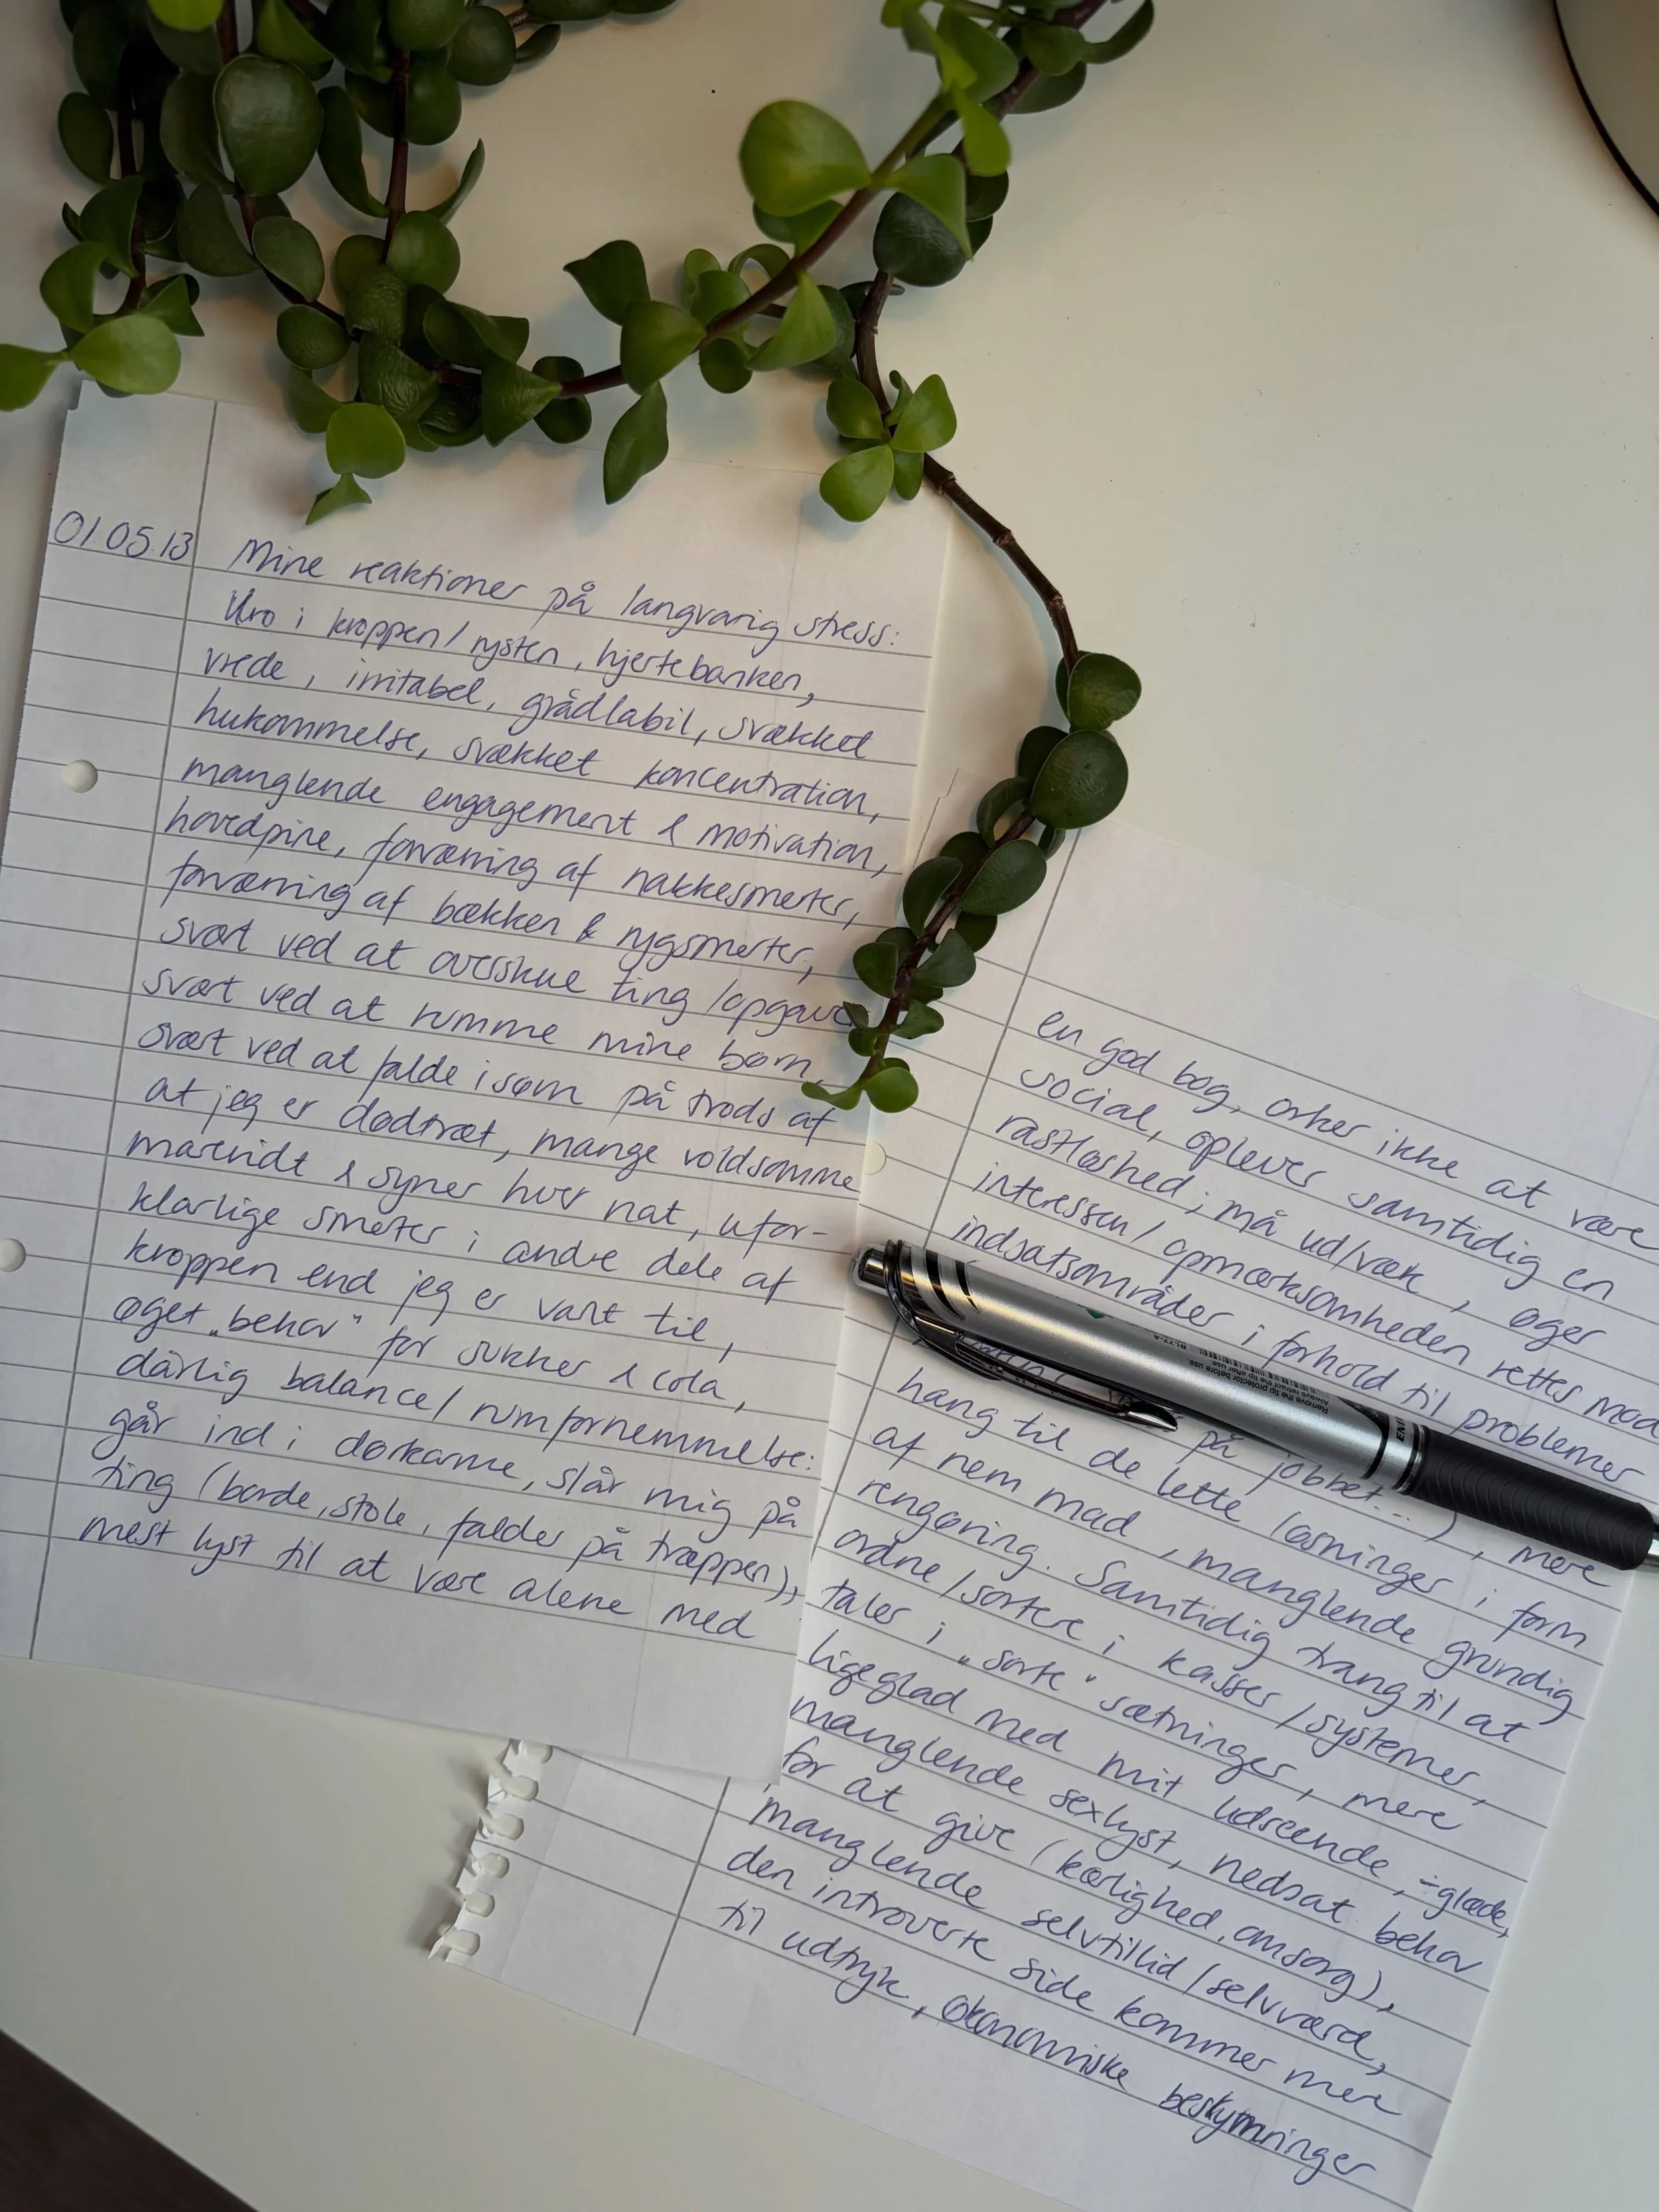 01.05.13
Mine reaktioner på langvarig stress:
Uro i kroppen/rysten, hjertebanken,
vrede, irritabel, grådlabil, svækket
hukommelse, svækket koncentration,
manglende engagement & motivation,
hovedpine, forværring af nakkesmerter,
forværring af bækken & rygsmerter,
svært ved at overskue ting/opgaver
svært ved at rumme mine børn,
svært ved at falde i søvn på trods af
at jeg er dødtræt, mange voldsomme
mareridt & syner hver nat, ufor-
klarlige smerter i andre dele af
kroppen end jeg er vant til,
øget "behov" for sukker & cola,
dårlig balance/rumfornemmelse:
går ind i dørkarme, slår mig på
ting (borde, stole, falder på trappen),
mest lyst til at være alene med
en god bog, orker ikke at være
social, oplever samtidig en
rastløshed; må ud/væk, øger
interessen/opmærksomheden rettes mod
indsatsområder i forhold til problemer
på jobbet..), mere
hang til de lette løsninger i form
af nem mad, manglende grundig
rengøring. Samtidig trang til at
ordne/sortere i kasser/systemer,
taler i "sorte" sætninger, mere
ligeglad med mit udseende, ÷glæde,
manglende sexlyst, nedsat behov
for at give (kærlighed, omsorg),
manglende selvtillid/selvværd,
den introverte side kommer mere
til udtryk, økonomiske bekymringer